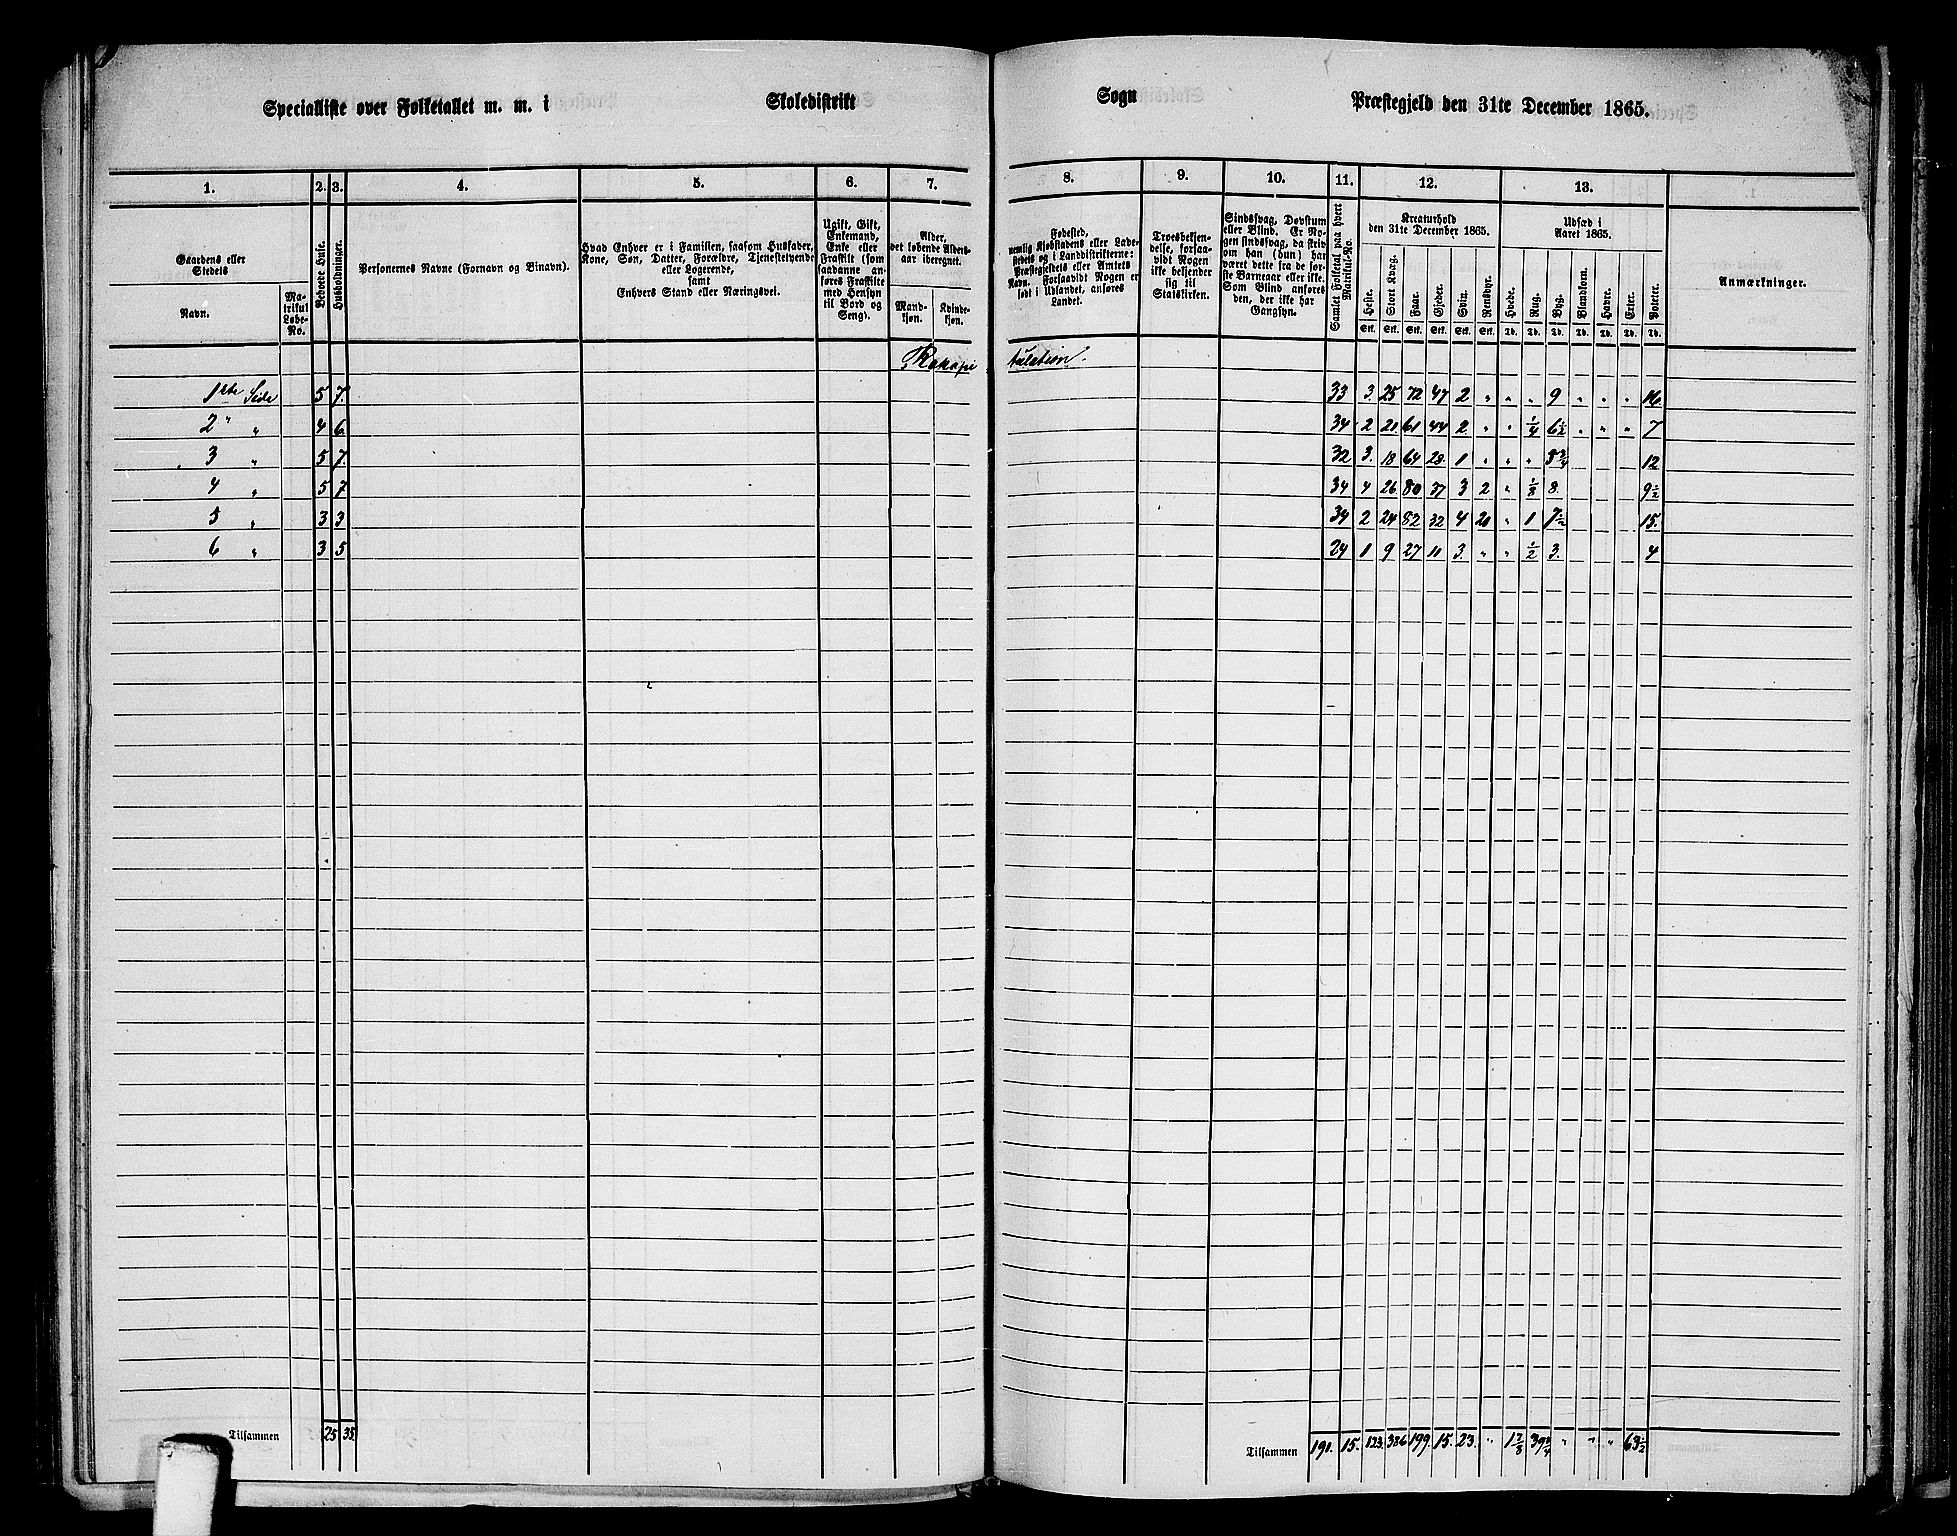 Specialliste over Folketallet m. m. i Skoledistrikt Sogn Præstegjeld den 31te December 1865.
1. 2. 3. 4. 5. 6. 7. 8. 9. 10. 11. 12. 13.
Gaardens eller Stedets
Navn.
Matrikul Løbe-No.
Beboede Huse.
Husholdninger.
Personernes Navne (Fornavn og Binavn).
Hvad Enhver er i Familien, saasom Husfader, Kone, Søn, Datter, Forældre, Tjenestetyende eller Logerende, samt Enhvers Stand eller Næringsvei.
Ugift, Gift, Enkemand, Enke eller Fraskilt (som saadanne anføres Fraskilte med Hensyn til Bord og Seng).
Alder, det løbende Alders-aar iberegnet.
Mand-kjøn. Kvinde-kjøn.
Fødested, nemlig Kjøbstadens eller Ladestedets og i Landdistrikterne: Præstegjeldets eller Amtets Navn. Forsaavidt Nogen er født i Udlandet, anføres Landet.
Troesbekjendelse, forsaavidt Nogen ikke bekjender sig til Statskirken.
Sindssvag, Døvstum eller Blind. Er Nogen sindssvag, da skriv om han (hun) har været dette fra de første Barneaar eller ikke. Som Blind anføres den, der ikke har Gangsyn.
Samlet Folketal paa hvert Matrikul-No.
Kreaturhold den 31te December 1865.
Heste. Stort Kvæg. Faar. Gjeder. Svin. Rensdyr.
Stk. Stk. Stk. Stk. Stk. Stk.
Udsæd i Aaret 1865.
Hvede. Rug. Byg. Blandkorn. Havre. Erter. Poteter.
Td. Td. Td. Td. Td. Td. Td.
Anmærkninger.
Rekapitulation.
1ste Side 5 7. 33 3. 25 72 47 2 " " " 9 " " " 16
2 " " 4 6. 34 2 21 61 44 2 " " 1/4 6 1/2 " " " 7
3 " 5 7. 32 3. 18 64 28. 1 " " " 5 3/4 12
4 " 5 7 34 4 26 80 37 3 2 " 1/8 8. 9 1/2
5 " 3 3 34 2 24 82 32 4 20 " 1 7 1/2 15.
6 " 3 5 24 1 9 27 11 3. " " 1/2 3. 4
Tilsammen 25 35. Tilsammen 191. 15. 123. 386 199. 15. 23. " 1 39 3/4 " " " 63 1/2